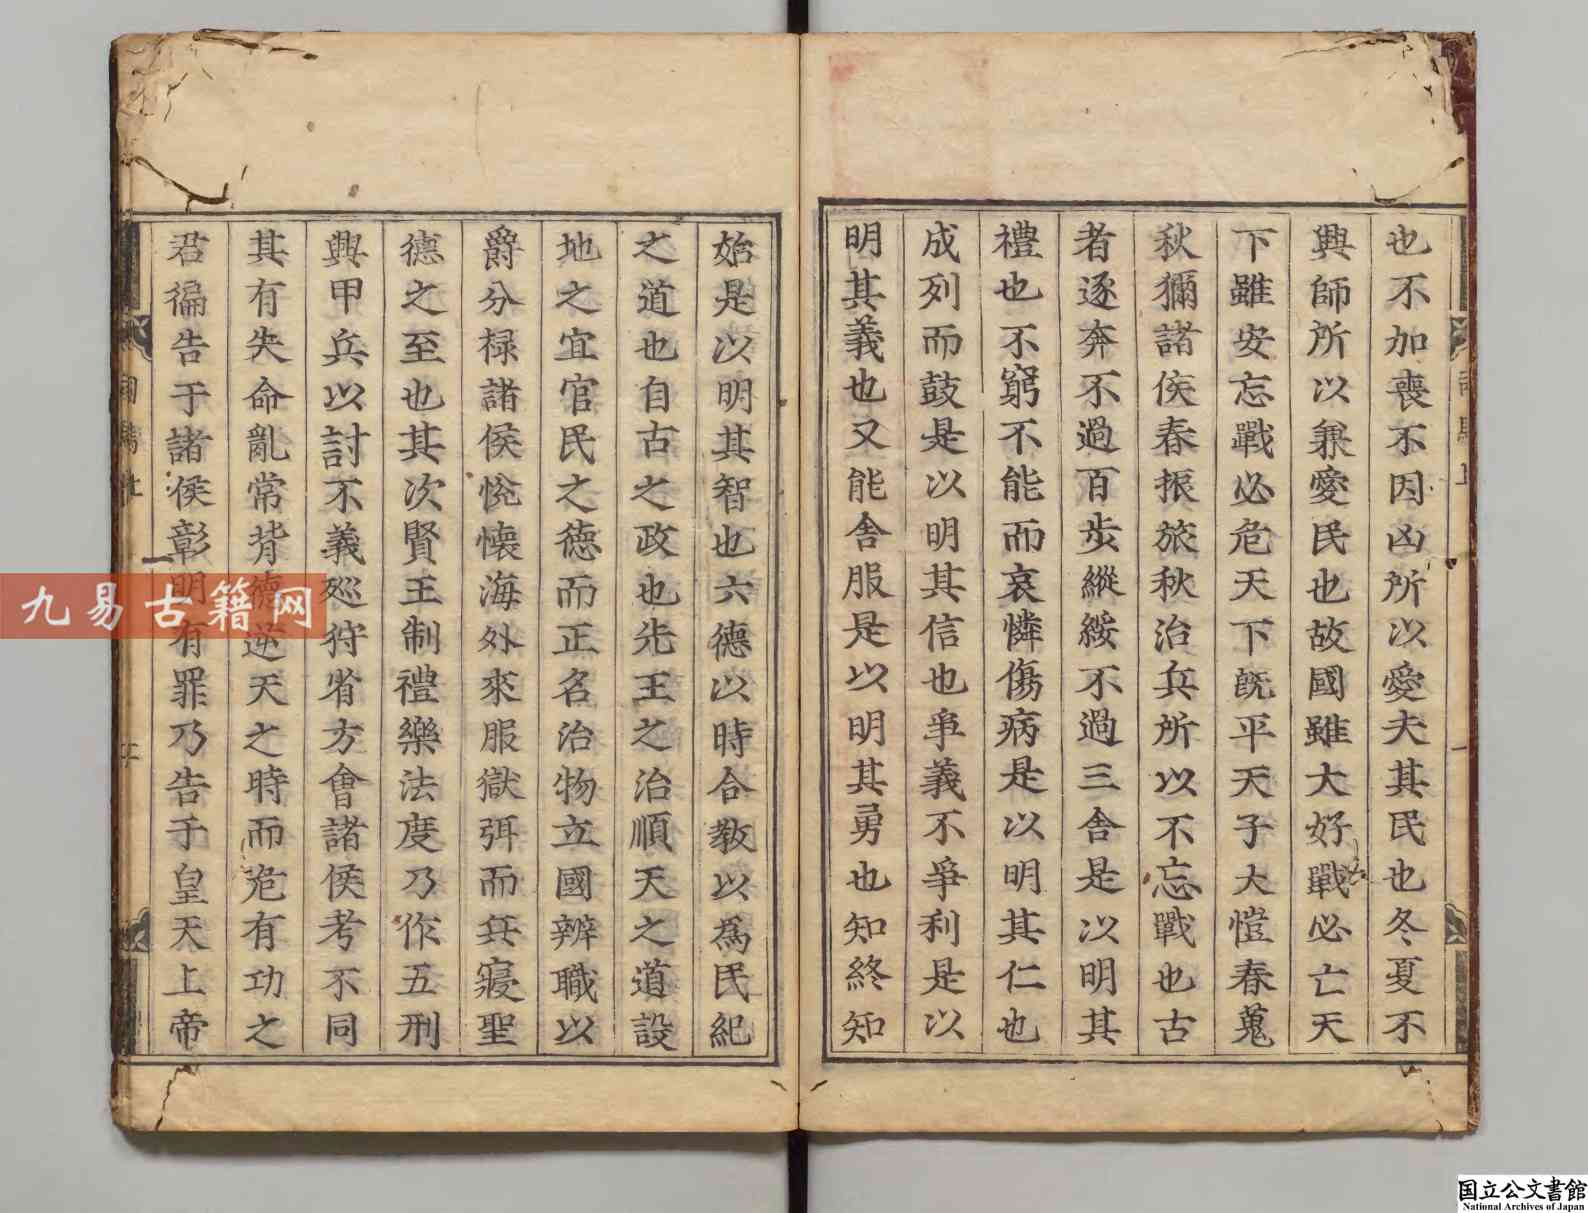 也不加喪不因凶所以愛夫其民也冬夏不
興師所以兼愛民也故國雖大好戰必亡天
下雖安忘戰必危天下既平天子大愷春蒐
秋獮諸侯春振旅秋治兵所以不忘戰也古
者逐奔不過百步縱綏不過三舍是以明其
禮也不窮不能而哀憐傷病是以明其仁也
成列而鼓是以明其信也爭義不爭利是以
明其義也又能舍服是以明其勇也知終知
始是以明其智也六德以時合教以爲民紀
之道也自古之政也先王之治順天之道設
地之宜官民之德而正名治物立國辨職以
爵分祿諸侯悅懷海外來服獄弭而兵寢聖
德之至也其次賢王制禮樂法度乃作五刑
興甲兵以討不義廵狩省方會諸侯考不同
其有失命亂常背德逆天之時而危有功之
君徧告于諸侯彰明有罪乃告于皇天上帝
九易古籍网
国立公文書館
National Archives of Japan